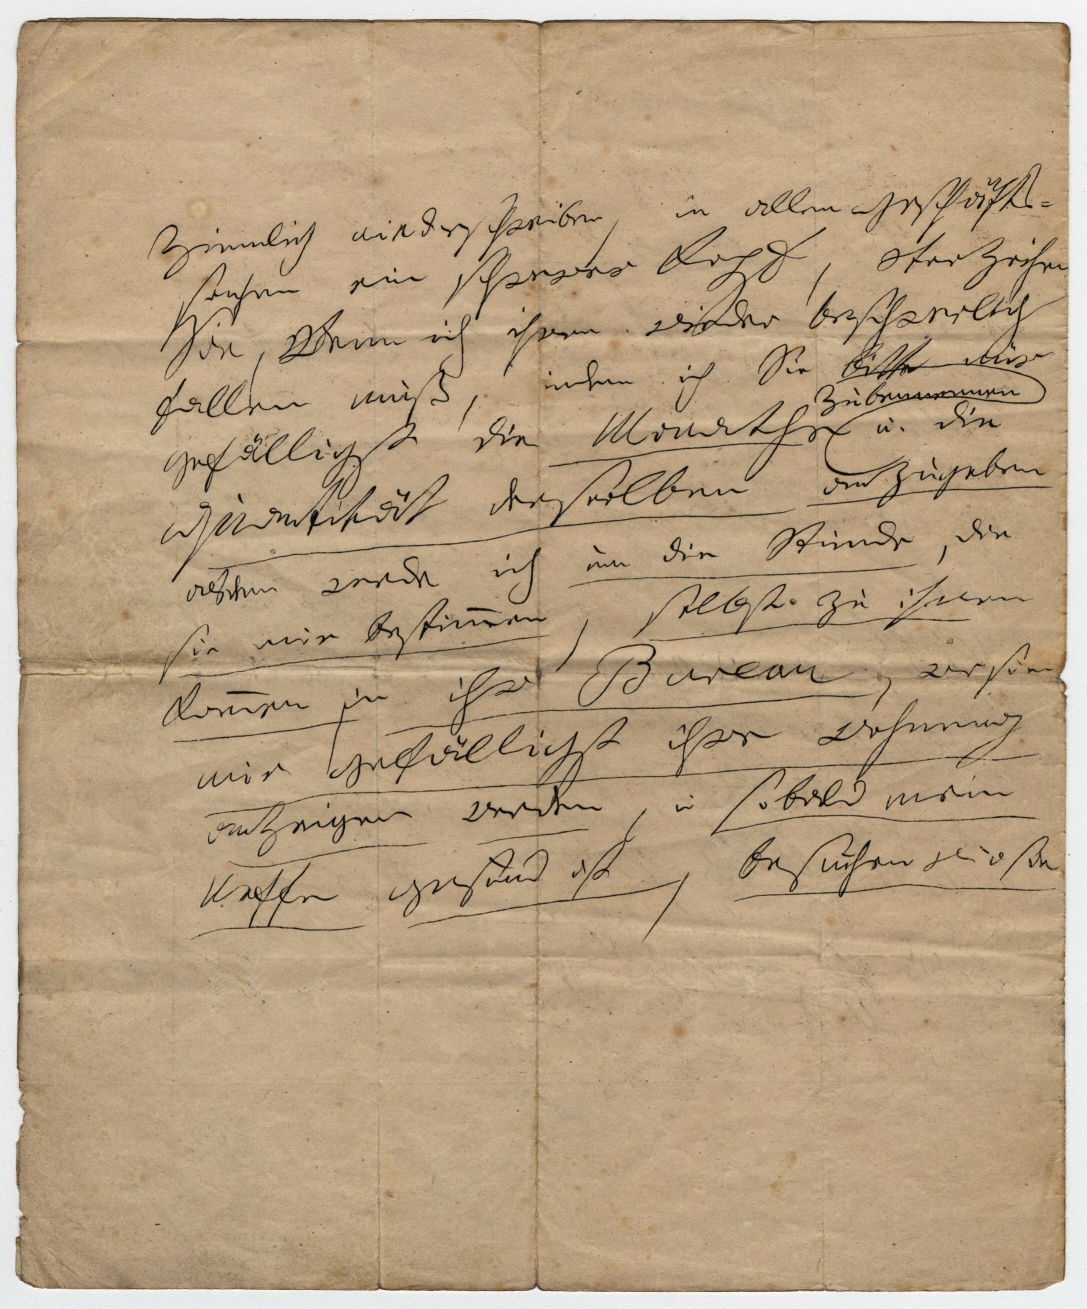 ziemlich niederschreiben, in allen Geschäfts-
sachen ein schwerer Kopf, Verzeihen
Sie, Wenn ich ihnen wieder beschwerlich
fallen muß, indem ich Sie bitte mir
gefälligst die Monathe zu benennen u. die
quantität derselben anzugeben
alsdenn werde ich um die Stunde, die
sie mir bestimmen, selbst zu ihnen
kommen in ihr Bureau, wo sie
mir gefälligst ihre wohnung
anzeigen werden, u sobald mein
Neffe gesund ist, besuchen